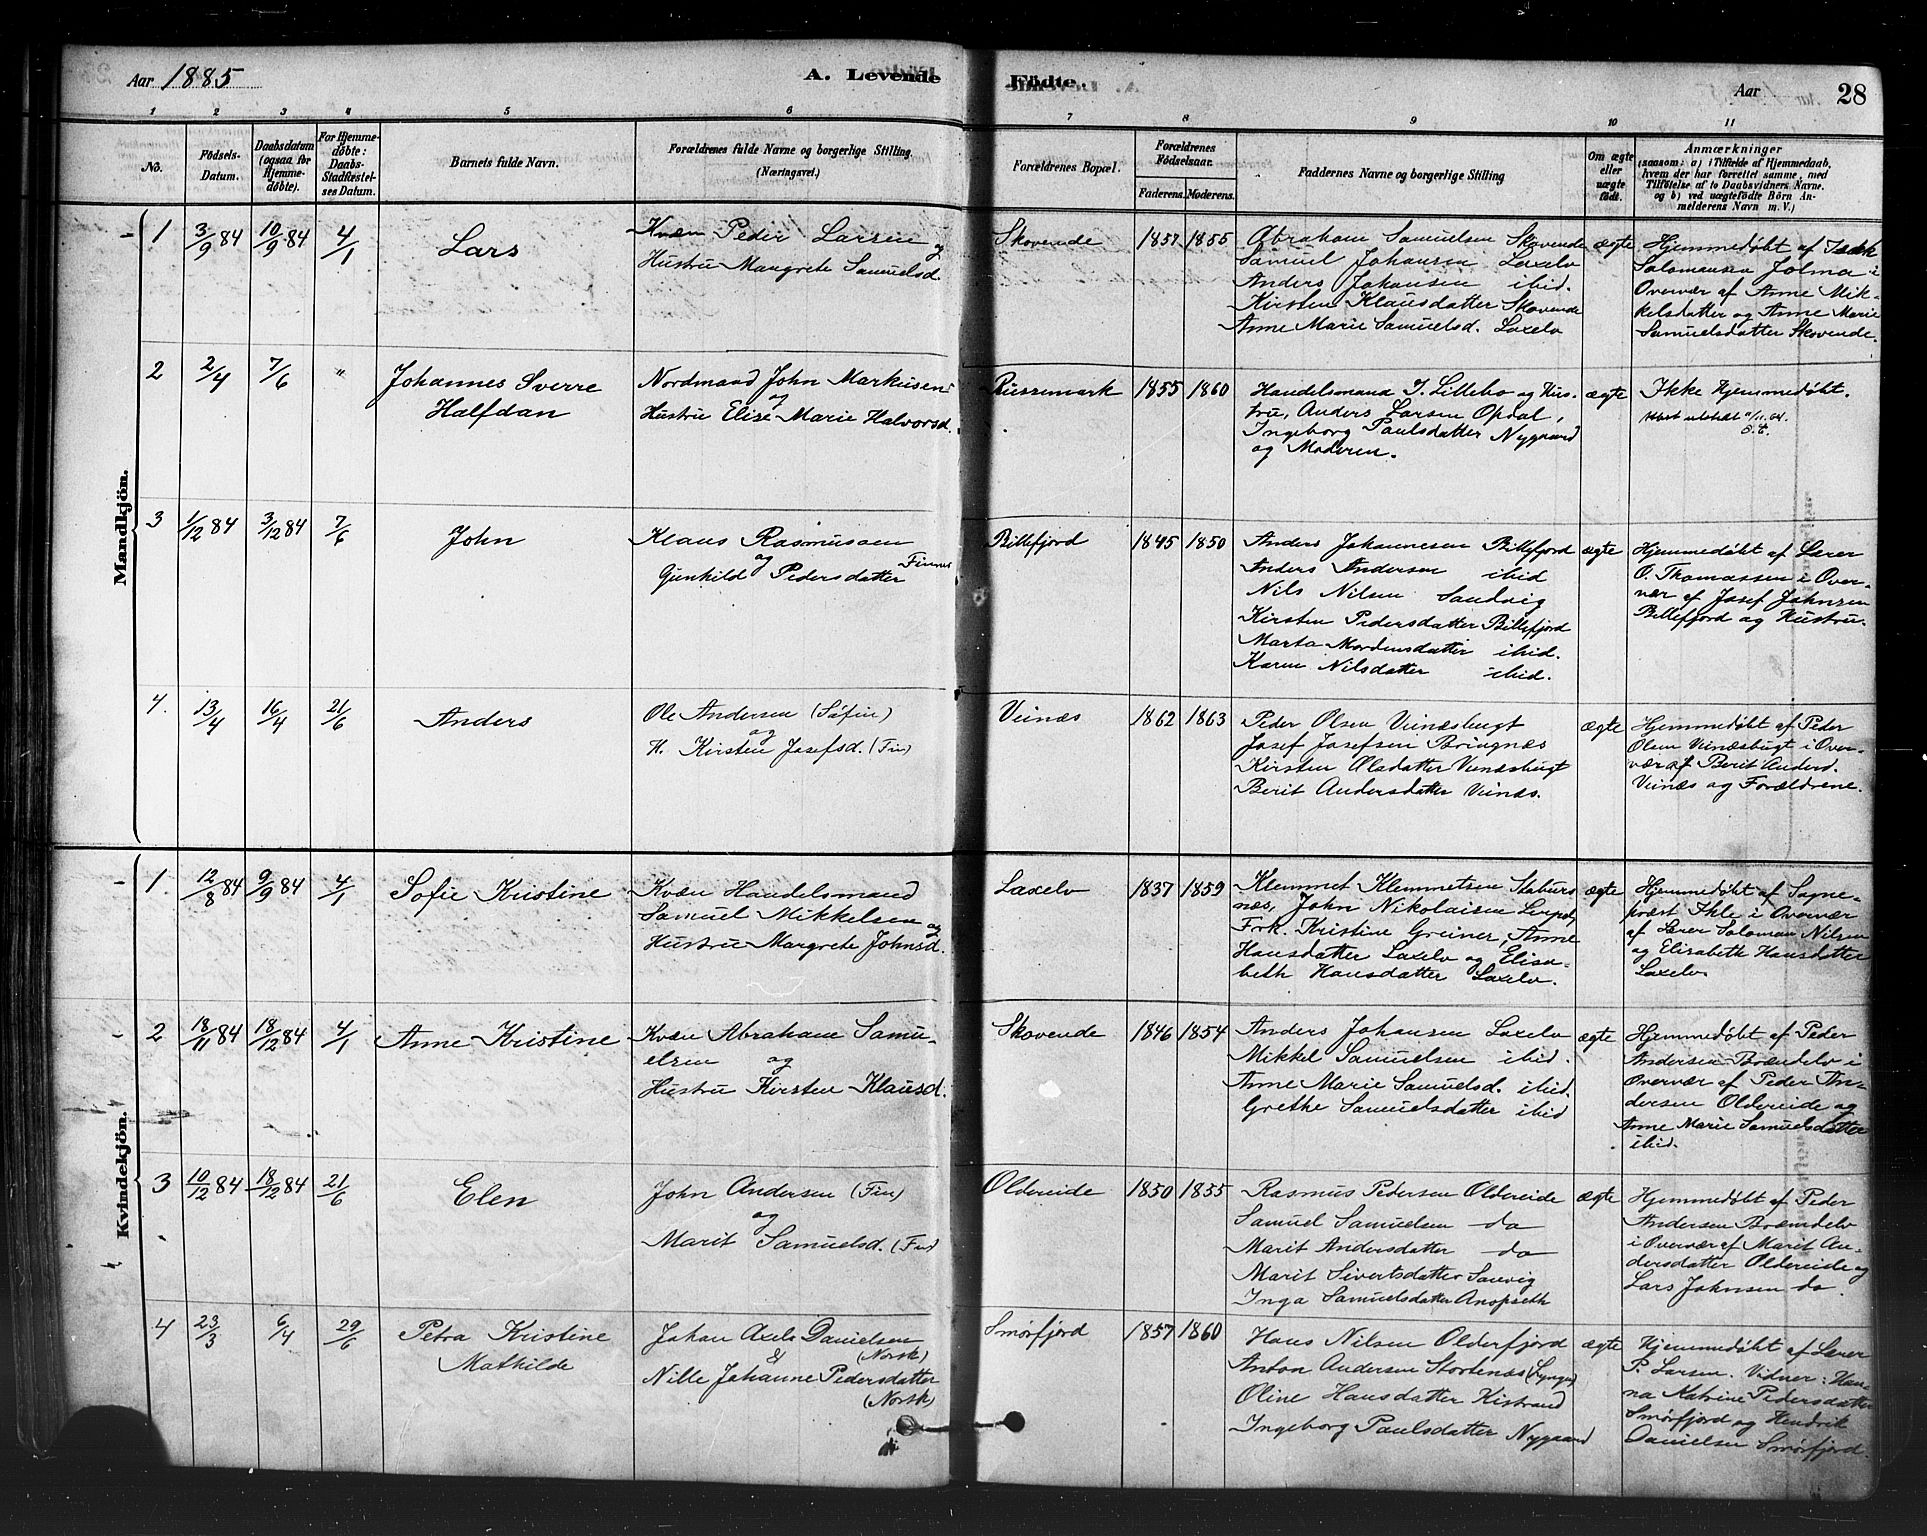 Aar 1885
A. Levende
Födte.
Aar
28
1 2 3 4 5 6 7 8 9 10 11
No.
Födsels-Datum.
Daabsdatum (ogsaa for Hjemmedöbte).
For Hjemmedöbte: Daabs-Stadfæstelses Datum.
Barnets fulde Navn.
Forældrenes fulde Navne og borgerlige Stilling. (Næringsvei.)
Forældrenes Bopæl.
Forældrenes Födselsaar.
Faderens. Moderens.
Faddernes Navne og borgerlige Stilling
Om ægte eller uægte födt.
Anmærkninger
(saasom: a) i Tilfælde af Hjemmedaab, hvem der har forrettet samme, med Tilföielse af to Daabsvidners Navne. og b) ved uægtefödte Börn Anmelderens Navn m. V.)
Mandkjön.
1 3/9 84 10/9 84 4/1 Lars
Kvæn Peder Larsen og
Hustru Margrete Samuelsd.
Skovende 1857 1855
Abraham Samuelsen Skovende
Samuel Johansen Laxelv
Anders Johansen ibid.
Kirsten Klausdatter Skovende
Anne Marie Samuelsd. Laxelv
ægte
Hjemmedøbt af Isak
Salomansen Jolma i
Overvær af Anne Mik-
kelsdatter og Anne Marie
Samuelsdatter Skovende.
2 2/4 7/6 "
Johannes Sverre
Halfdan
Nordmand John Markusen
og
Hustru Elise Marie Halvorsd.
Russemark 1855 1860
Handelsmand J. Lillebo og Hus-
tru, Anders Larsen Opdal,
Ingeborg Paulsdatter Nygaard
og Moderen.
ægte
Ikke Hjemmedøbt.
3 1/12 84 3/12 84 7/6 John
Klaus Rasmussen
og Finner
Gunhild Pedersdatter
Billefjord 1845 1850
Anders Johannesen Billefjord
Anders Andersen ibid
Nils Nilsen Sandvig
Kirsten Pedersdatter Billefjord
Marta Mordensdatter ibid.
Karen Nilsdatter ibid.
ægte
Hjemmedøbt af Lærer
O. Thomassen i Over-
vær af Josef Johnsen
Billefjord og Hustru.
4. 13/4 16/4 21/6 Anders
Ole Andersen (Søfin)
og
H. Kirsten Josefsd. (Fin)
Veinæs 1862 1863
Peder Olsen Veinæsbugt
Josef Josefsen Bringnæs
Kirsten Olsdatter Veinæsbugt
Berit Andersdatter Veinæs.
ægte
Hjemmedøbt af Peder
Olsen Veinæsbugt i Over-
vær af Berit Andersd.
Veinæs og Forældrene.
Kvindekjön.
1. 12/8 84 9/9 84 4/1 Sofie Kristine
Kvæn Handelsmand
Samuel Mikkelsen og
Hustru Margrete Johnsd.
Laxelv 1837 1859
Klemmet Klemmetsen Staburs-
næs, John Nikolaisen Leirpol,
Frk. Kristine Greiner, Anne
Hansdatter Laxelv og Elisa-
beth Hansdatter Laxelv.
ægte
Hjemmedøbt af Sogne-
præst Ihle i Overvær
af Lærer Saloman Nilsen
og Elisabeth Hansdatter
Laxelv.
2 18/11 84 18/12 84 4/1 Anne Kristine
Kvæn Abraham Samu-
elsen og
Hustru Kirsten Klausd.
Skovende 1846 1854
Anders Johansen Laxelv
Mikkel Samuelsen ibid.
Anne Marie Samuelsd. ibid.
Grethe Samuelsdatter ibid
ægte
Hjemmedøbt af Peder
Andersen Brændelv i
Overvær af Peder An-
dersen Oldereide og
Anne Marie Samuelsdatter
ibid.
3 10/12 84 18/12 84 21/6 Elen
John Andersen (Fin)
og
Marit Samuelsd. (Fin)
Oldereide 1850 1855
Rasmus Pedersen Oldereide
Samuel Samuelsen do
Marit Andersdatter do
Marit Sivertsdatter Sanvig
Inga Samuelsdatter Anopseth
ægte
Hjemmedøbt af Peder
Andersen Brændelv
i Overvær af Marit An-
dersdatter Oldereide og
Lars Johnsen do.
4 23/3 6/4 29/6
Petra Kristine
Mathilde
Johan Axel Danielsen
& (Norsk)
Nille Johanne Pedersdatter
(Norsk)
Smørfjord 1857 1860
Hans Nilsen Olderfjord
Anton Andersen Stortenæs (Lyngen)
Oline Hansdatter Kistrand
Ingeborg Paulsdatter Nygaard
ægte
Hjemmedøbt af Lærer
P. Larsen. Vidner: Han-
na Katrine Pedersdatter
Smørfjord og Hendrik
Danielsen Smørfjord.